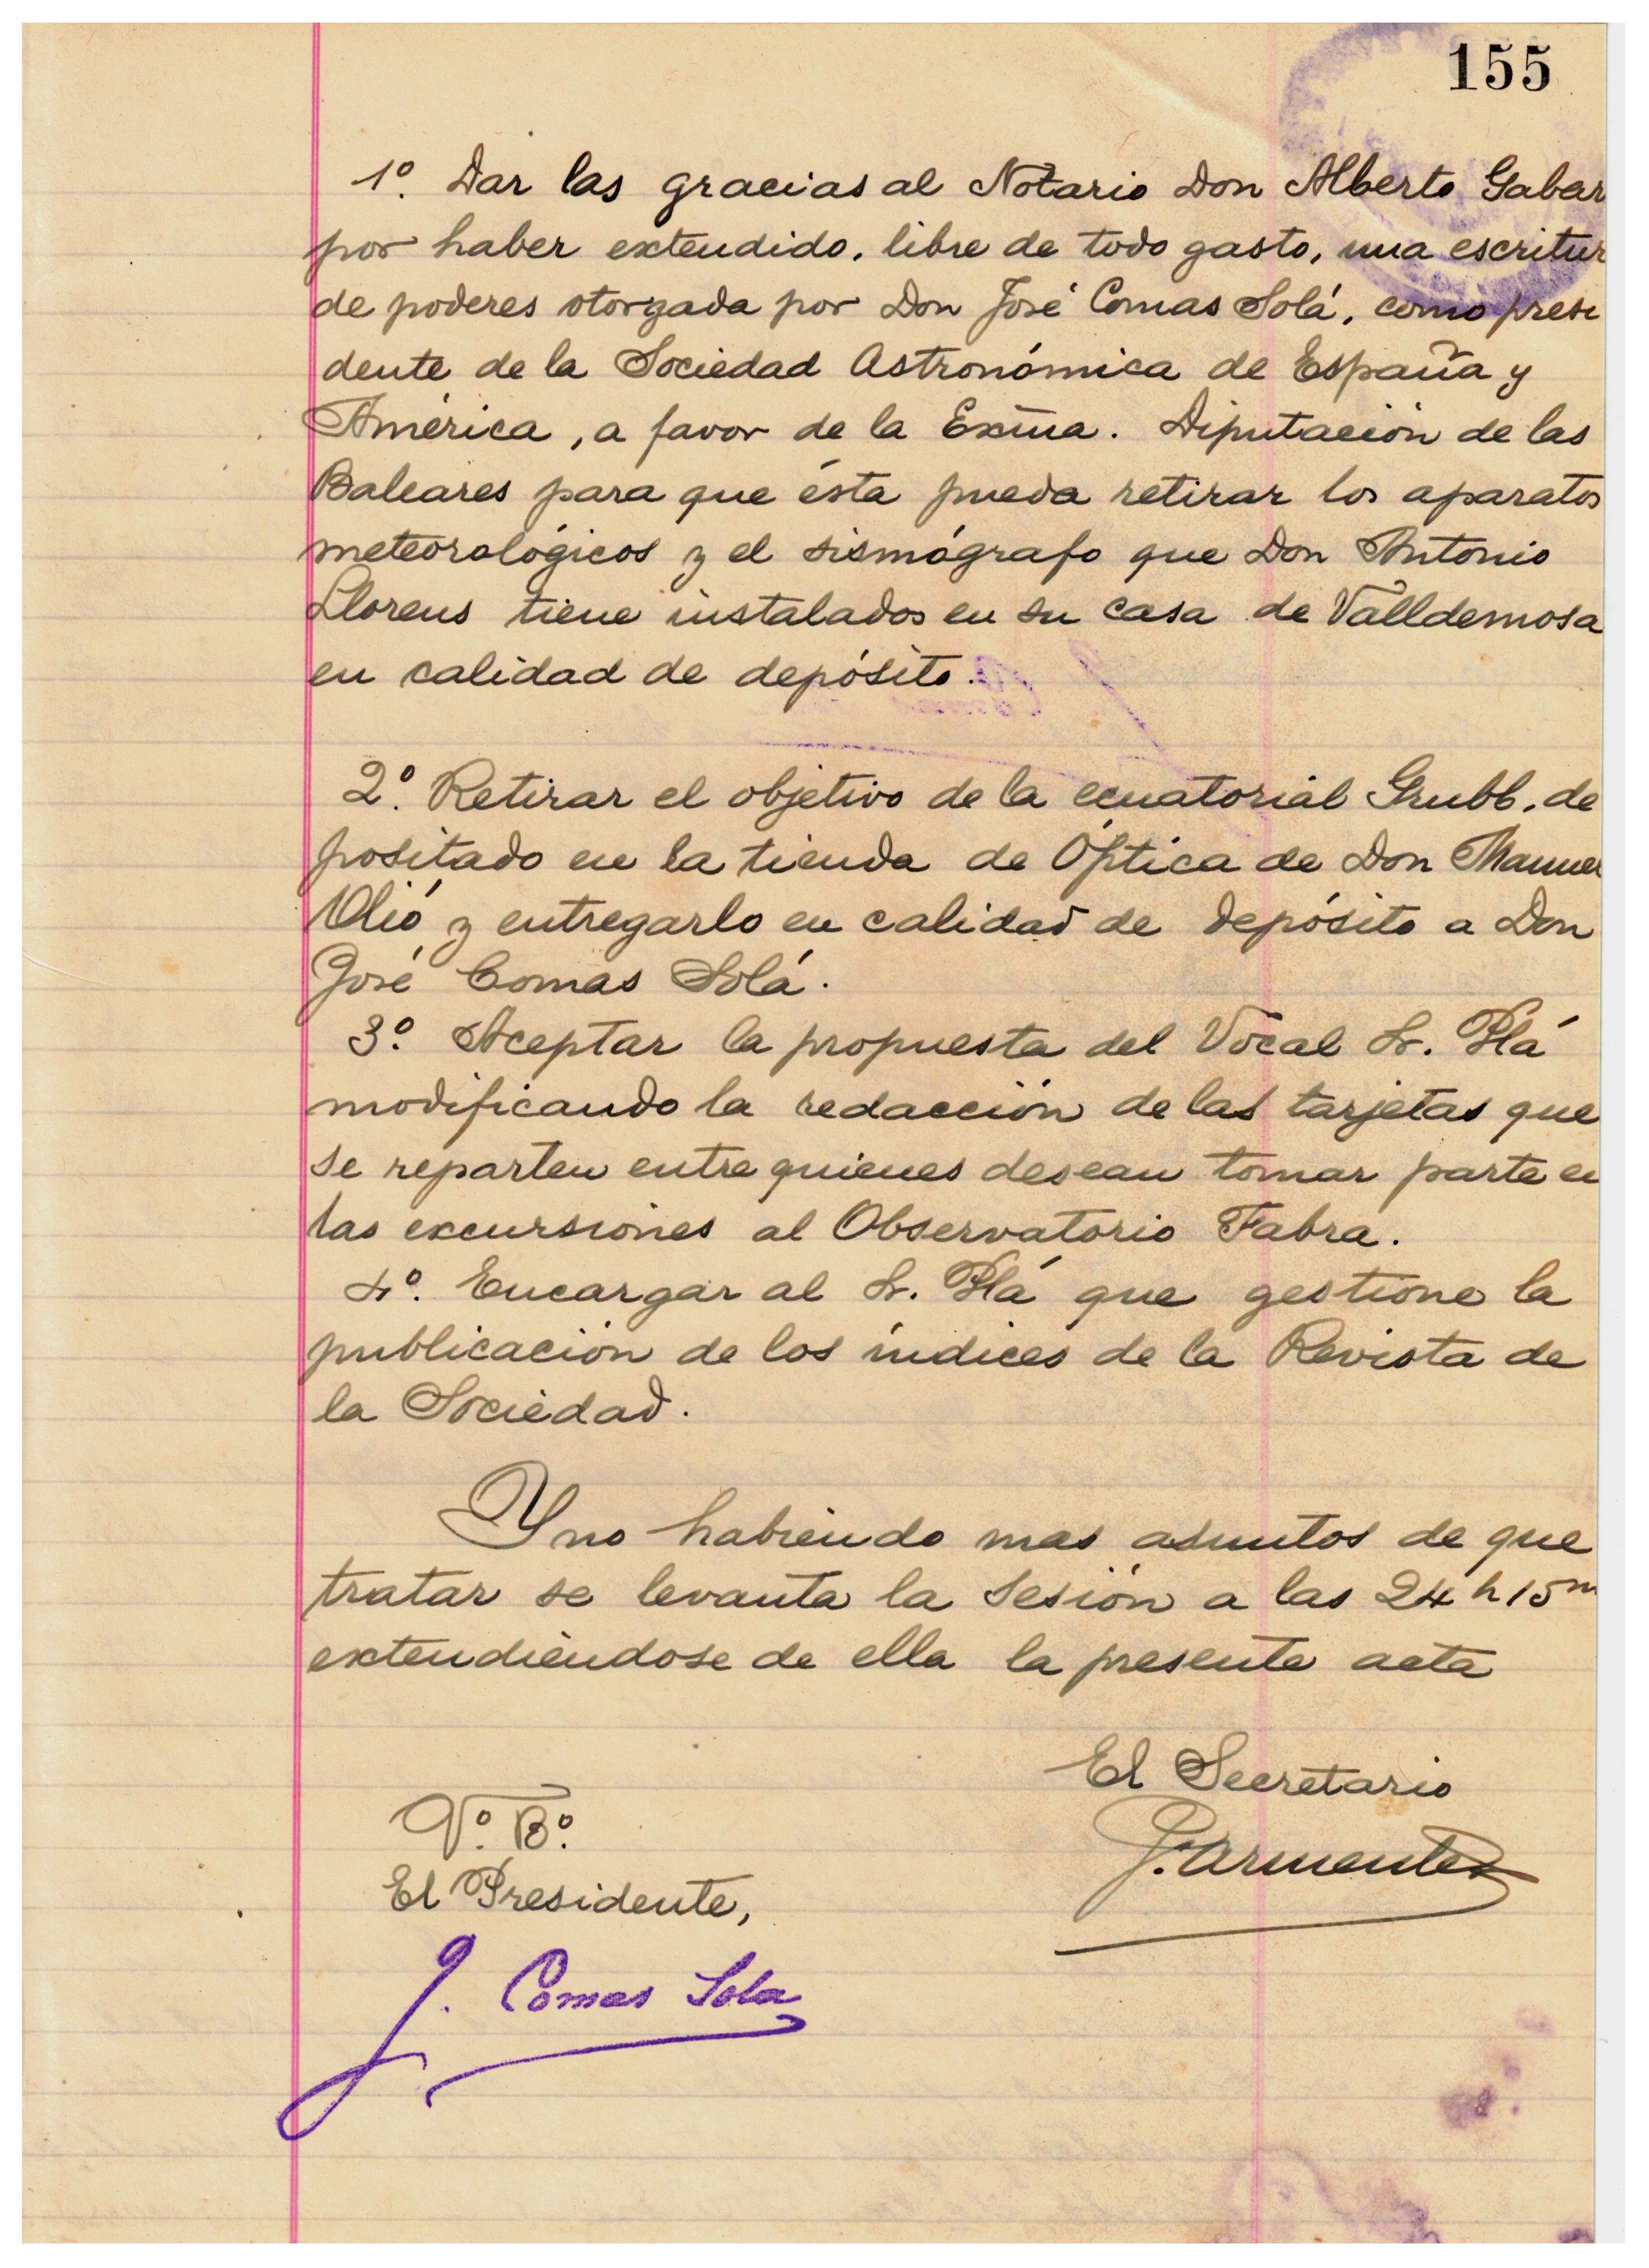 155
1º. Dar las gracias al Notario Don Alberto Gabar
por haber extendido, libre de todo gasto, una escritur
de poderes otorgada por Don José Comas Solá, como presi
dente de la Sociedad Astronómica de España y
América, a favor de la Exm̃a. Diputación de las
Baleares para que ésta pueda retirar los aparatos
meteorológicos y el sismógrafo que Don Antonio
Llorens tiene instalados en su casa de Valldemosa
en calidad de depósito.
2º. Retirar el objetivo de la ecuatorial Grubb, de
positado en la tienda de Óptica de Don Manuel
Olió y entregarlo en calidad de depósito a Don
José Comas Solá.
3º. Aceptar la propuesta del Vocal Sr. Plá
modificando la redacción de las tarjetas que
se reparten entre quienes desean tomar parte en
las excursiones al Observatorio Fabra.
4º. Encargar al Sr. Plá que gestione la
publicación de los índices de la Revista de
la Sociedad.
Y no habiendo mas asuntos de que
tratar se levanta la sesión a las 24 h 15 m
extendiéndose de ella la presente acta
El Secretario
Vº. Bº.
El Presidente,
J. Comas Solá